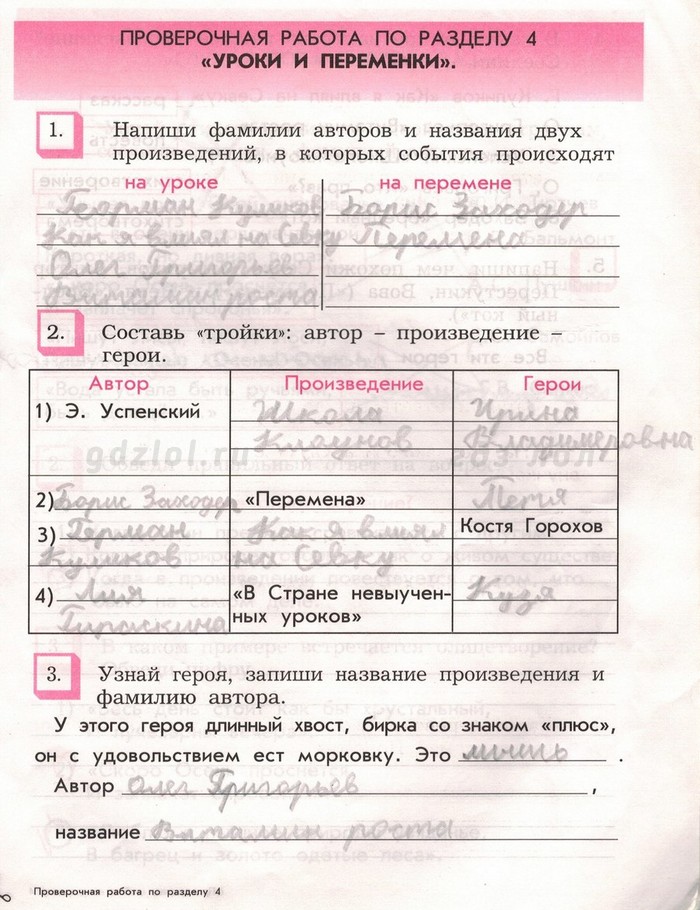 ПРОВЕРОЧНАЯ РАБОТА ПО РАЗДЕЛУ 4
«УРОКИ И ПЕРЕМЕНКИ».
1. Напиши фамилии авторов и названия двух
произведений, в которых события происходят
на уроке на перемене
Герман Куликов Борис Заходер
Как я влиял на Севку Перемена
Олег Григорьев
Витамин роста
2. Составь «тройки»: автор – произведение –
герои.
Автор Произведение Герои
1) Э. Успенский Школа Ирина
Клоунов Владимировна
gdzlol.ru
2) Борис Заходер «Перемена» Петя
3) Герман Как я влиял Костя Горохов
Куликов на Севку
4) Лия «В Стране невыучен- Кузя
Гираскина ных уроков»
3. Узнай героя, запиши название произведения и
фамилию автора.
У этого героя длинный хвост, бирка со знаком «плюс»,
он с удовольствием ест морковку. Это мышь .
Автор Олег Григорьев ,
название Витамин роста
Проверочная работа по разделу 4